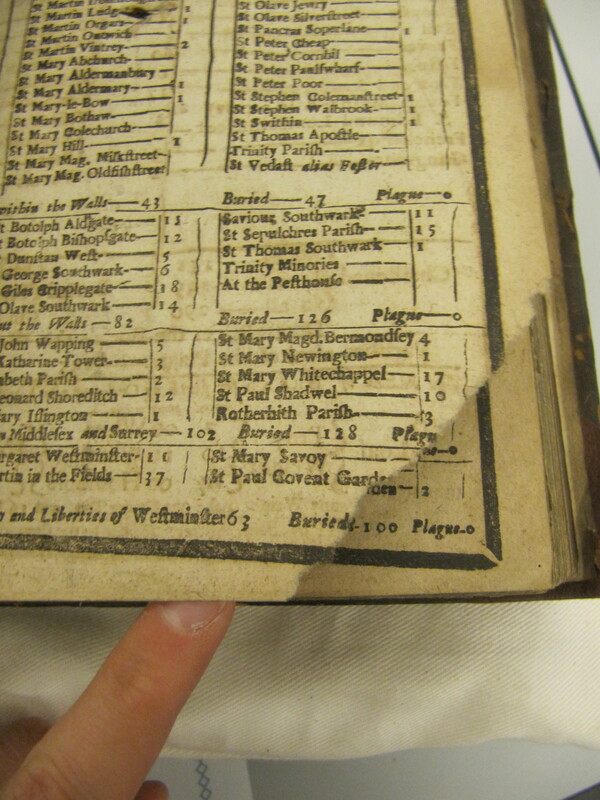 St Martin Ludg 1
St Martin Orgars 1
St Martin Outwich
St Martin Vintrey 2
St Mary Abchurch
St Mary Aldermanbury
St Mary Aldermary 1
St Mary-le-Bow 1
St Mary Bothaw
St Mary Colechurch
St Mary Hill 1
St Mary Mag. Milkſtreet
St Mary Mag. Oldfiſhſtreet
St Olave Jewry
St Olave Silverſtreet
St Pancras Soperlane 1
St Peter Cheap
St Peter Cornhil
St Peter Paulſwharf
St Peter Poor
St Stephen Colemanſtreet 1
St Stephen Walbrook 1
St Swithin 1
St Thomas Apoſtle
Trinity Pariſh
St Vedaſt alias Foſter
within the Walls — 43 Buried — 47 Plague — 0
t Botolph Aldgate 15
t Botolph Biſhopſgate 12
Dunſtan Weſt 5
George Southwark 6
Giles Cripplegate 18
Olave Southwark 14
Saviour Southwark 11
St Sepulchres Pariſh 15
St Thomas Southwark 1
Trinity Minories
At the Peſthouſe
ut the Walls — 82 Buried — 126 Plague — 0
John Wapping 5
Katharine Tower 3
mbeth Pariſh 2
eonard Shoreditch 12
ary Iſlington 1
St Mary Magd. Bermondſey 4
St Mary Newington 1
St Mary Whitechappel 17
St Paul Shadwel 10
Rotherhith Pariſh 13
n Middleſex and Surrey — 102 Buried — 128 Plagu e — 0
rgaret Weſtminſter 11
rtin in the Fields 37
St Mary Savoy
St Paul Covent Garden 2
and Liberties of Weſtminſter 63 Buried — 100 Plague — 0